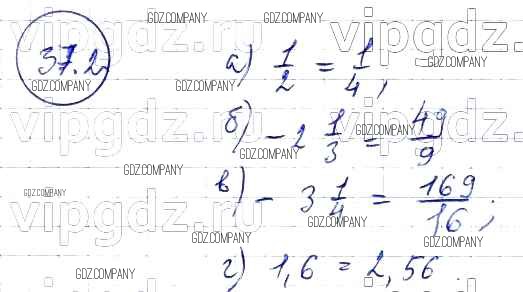 GDZ.COMPANY
vipgdz.ru vipgdz.ru
37.2 а) 1/2 = 1/4;
GDZ.COMPANY GDZ.COMPANY
GDZ.COMPANY GDZ.COMPANY
vipgdz.ru vipgdz.ru
б) -2 1/3 = 49/9
GDZ.COMPANY
GDZ.COMPANY
GDZ.COMPANY
GDZ.COMPANY
GDZ.COMPANY
в) - 3 1/4 = 169/16;
vipgdz.ru vipgdz.ru
GDZ.COMPANY
GDZ.COMPANY
GDZ.COMPANY
г) 1,6 = 2,56
GDZ.COMPANY
GDZ.COMPANY